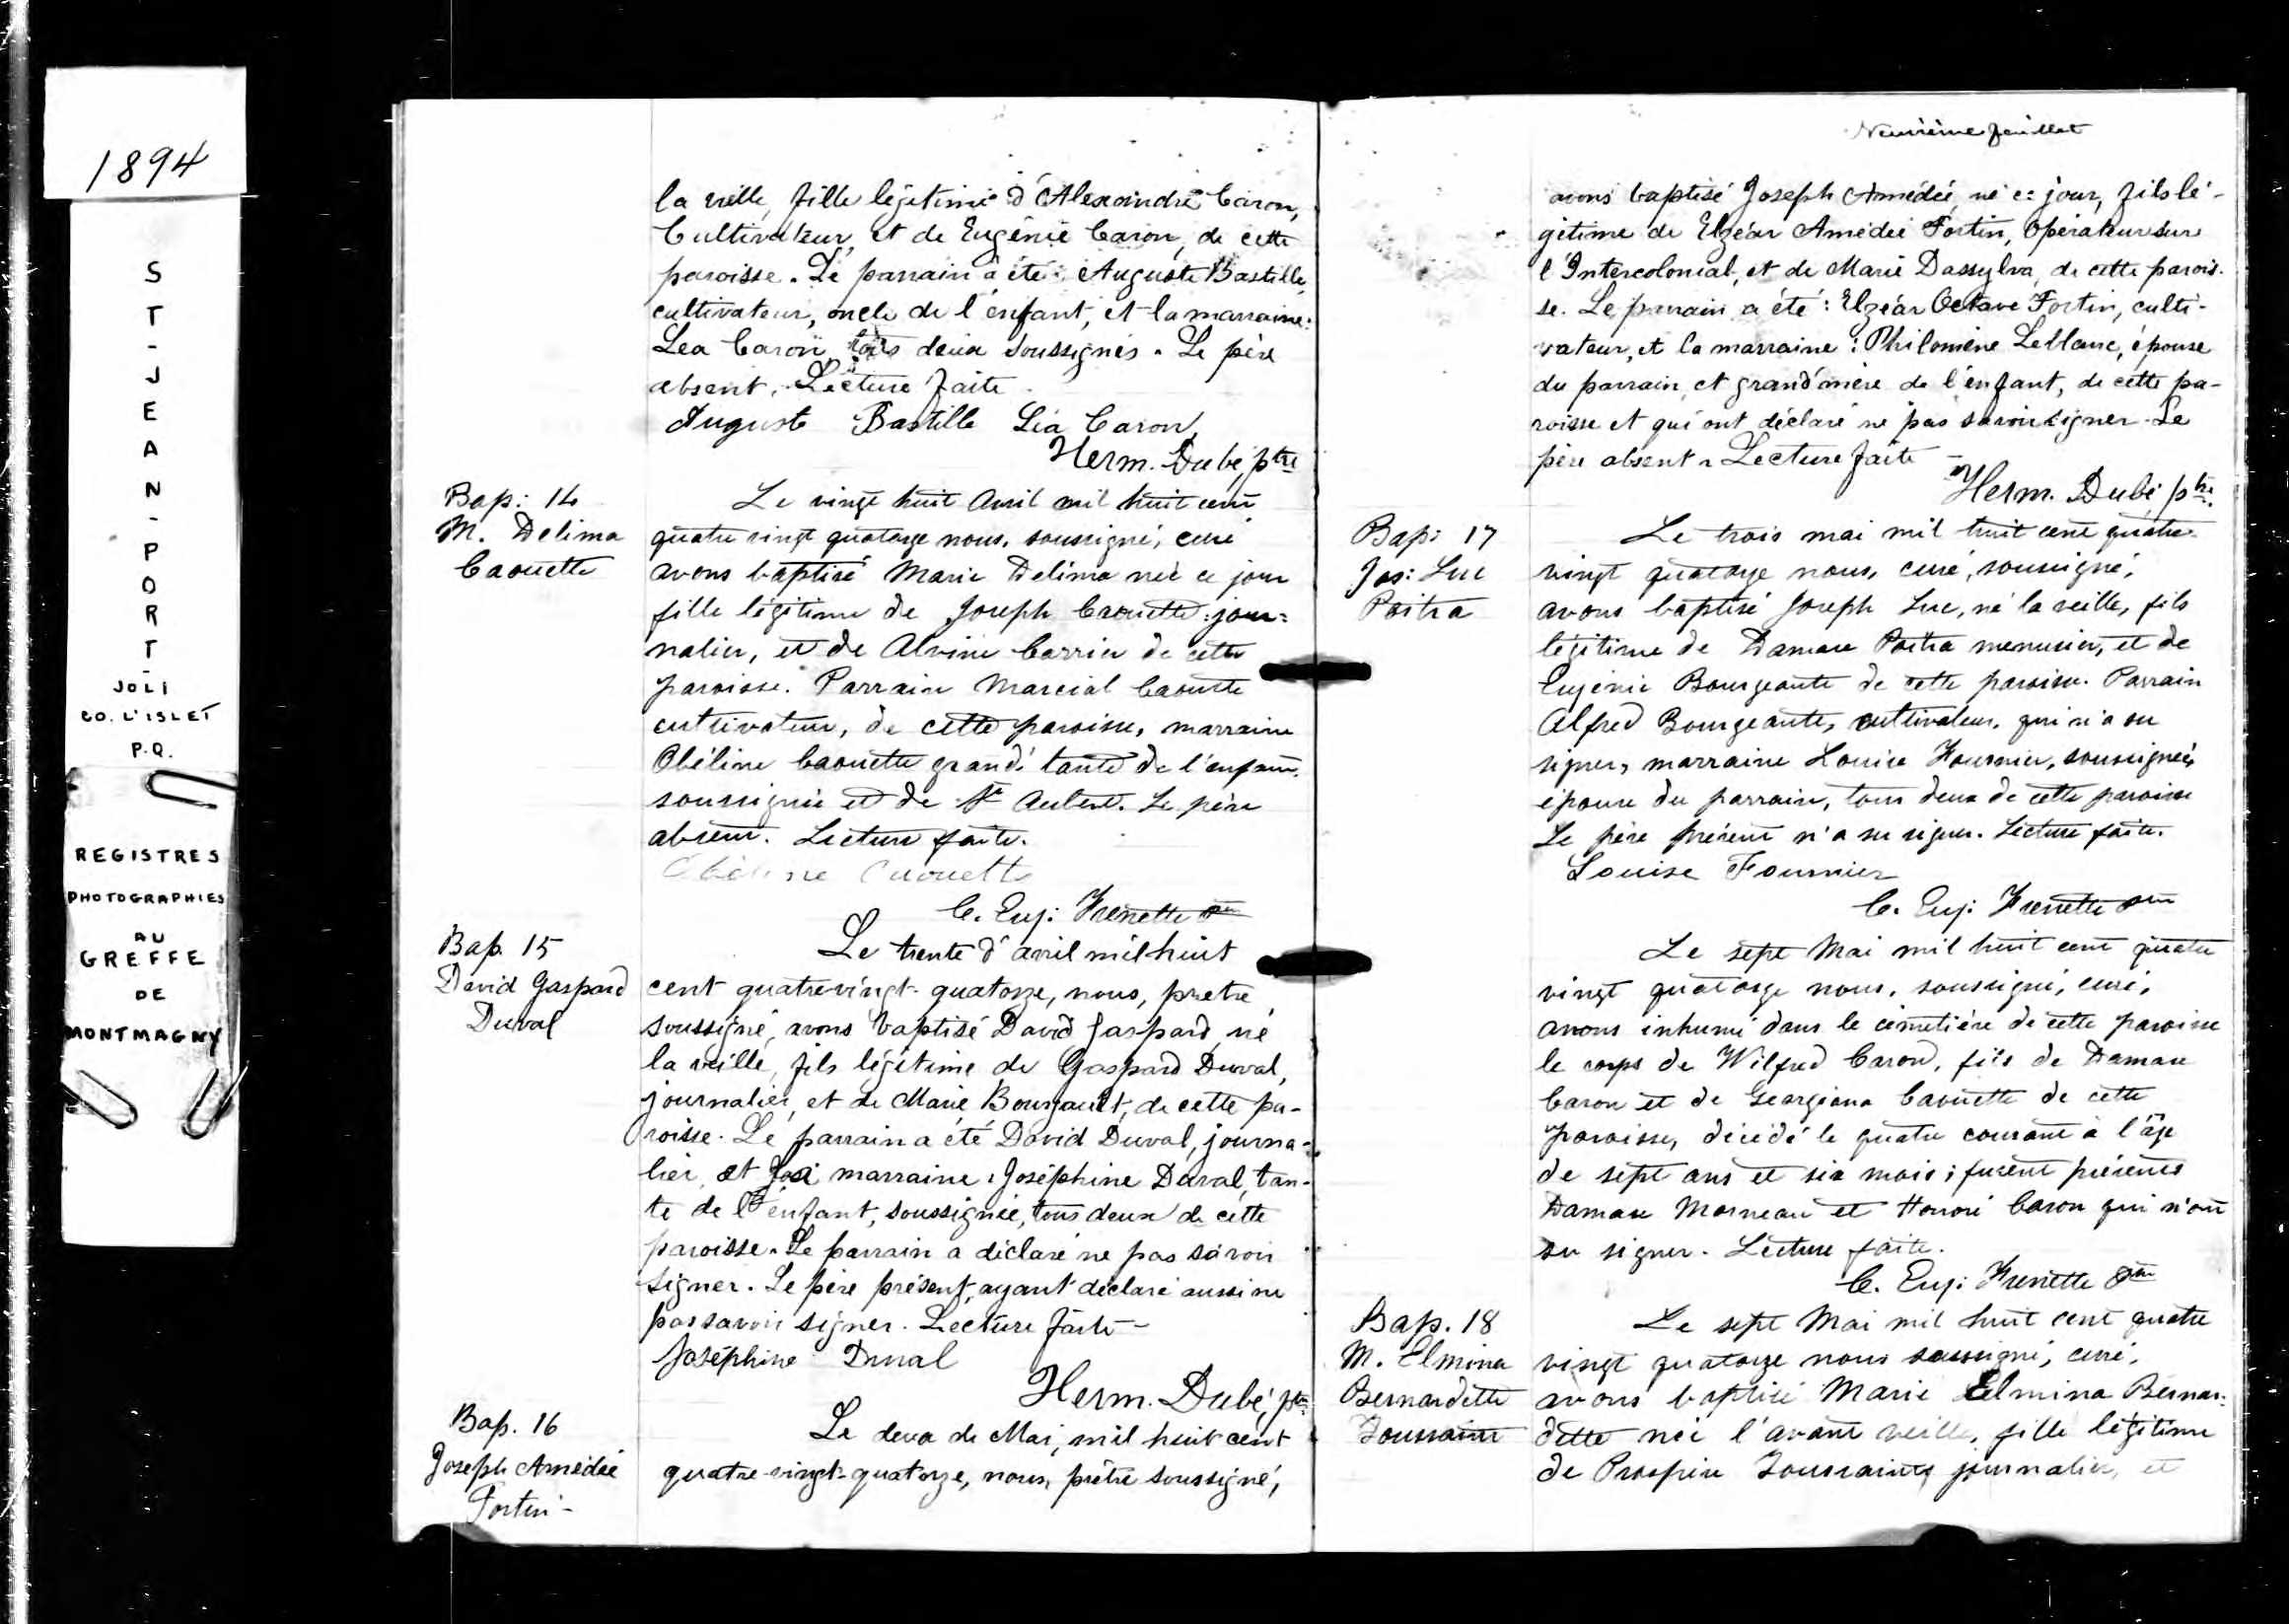 1894
S
T
-
J
E
A
N
-
P
O
R
T
-
JOLI
CO. L'ISLET
P.Q.
REGISTRES
PHOTOGRAPHIES
AU
GREFFE
DE
MONTMAGNY
la veille, fille légitime d'Alexandre Caron,
Cultivateur, et de Eugénie Caron, de cette
paroisse. Le parrain a été: Auguste Bastille,
cultivateur, oncle de l'enfant, et la marraine:
Léa Caron, tous deux soussignés. Le père
absent. Lecture faite.
Auguste Bastille Léa Caron
Herm. Dubé, ptre
Bap: 14
M. Delima
Caouette
Le vingt huit Avril mil huit cent
quatre vingt quatorze nous, soussigné, curé
avons baptisé Marie Delima née ce jour
fille légitime de Joseph Caouette jour=
nalier, et de Alvine Carrier de cette
paroisse. Parrain Marcial Caouette
cultivateur, de cette paroisse, marraine
Obéline Caouette grand'tante de l'enfant,
soussignée et de St Aubert. Le père
absent. Lecture faite.
Obéline Caouette
C. Eug: Frenette
Bap. 15
David Gaspard
Duval
Le trente d'avril mil huit
cent quatre-vingt-quatorze, nous, prêtre
soussigné, avons baptisé David Gaspard, né
la veille, fils légitime de Gaspard Duval,
journalier, et de Marie Bourgault, de cette pa-
roisse. Le parrain a été David Duval, journa-
lier, et la marraine: Joséphine Duval, tan-
te de l'enfant, soussignée, tous deux de cette
paroisse. Le parrain a déclaré ne pas savoir
signer. Le père présent, ayant déclaré aussi ne
pas savoir signer. Lecture faite -
Joséphine Duval
Herm. Dubé, ptre
Bap. 16
Joseph Amédée
Fortin -
Le deux de Mai, mil huit cent
quatre-vingt-quatorze, nous, prêtre soussigné,
Neuvième feuillet
avons baptisé Joseph Amédée, né ce jour, fils lé-
gitime de Elzéar Amédée Fortin, Opérateur sur
l'Intercolonial, et de Marie Dassylva, de cette parois-
se. Le parrain a été: Elzéar Octave Fortin, culti-
vateur, et la marraine: Philomène Leblanc, épouse
du parrain, et grand'mère de l'enfant, de cette pa-
roisse et qui ont déclaré ne pas savoir signer. Le
père absent. Lecture faite -
Herm. Dubé, ptre.
Bap: 17
Jos: Luc
Poitra
Le trois mai mil huit cent quatre
vingt quatorze nous, curé, soussigné,
avons baptisé Joseph Luc, né la veille, fils
légitime de Damase Poitra menusier, et de
Eugénie Bourgeault de cette paroisse. Parrain
Alfred Bourgeault, cultivateur, qui n'a su
signer, marraine Louise Fournier, soussignée,
épouse du parrain, tous deux de cette paroisse
Le père présent n'a su signer. Lecture faite.
Louise Fournier
C. Eug: Frenette
Le sept Mai mil huit cent quatre
vingt quatorze nous, soussigné, curé,
avons inhumé dans le cimetière de cette paroisse
le corps de Wilfred Caron, fils de Damase
Caron et de Georgiana Caouette de cette
paroisse, décédé le quatre courant à l'âge
de sept ans et six mois; furent présents
Damase Morneau et Honoré Caron qui n'ont
su signer. Lecture faite.
C. Eug: Frenette
Bap. 18
M. Elmina
Bernardette
Toussaint
Le sept Mai mil huit cent quatre
vingt quatorze nous soussigné, curé,
avons baptisé Marie Elmina Bernar-
dette née l'avant veille, fille légitime
de Prospère Toussaint, journalier, et